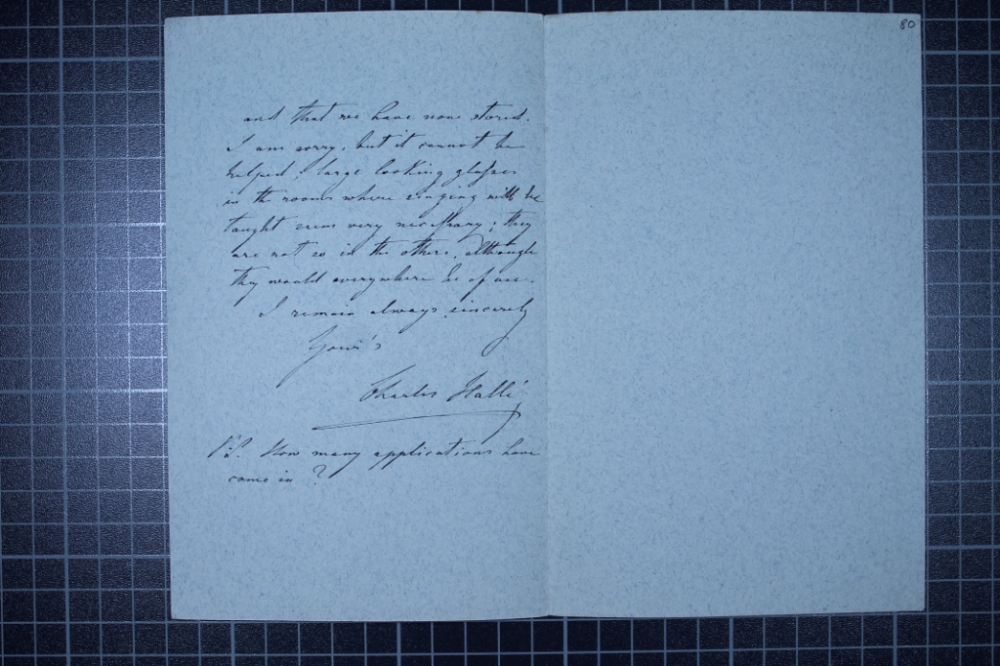 and that we have none stored.
I am sorry, but it cannot be
helped; large looking glasses
in the rooms where singing will be
taught seem very necessary; they
are not so in the others, although
they would everywhere be of use.
I remain always sincerely
Your's
Charles Hallé
P.S. How many applications have
come in?
80